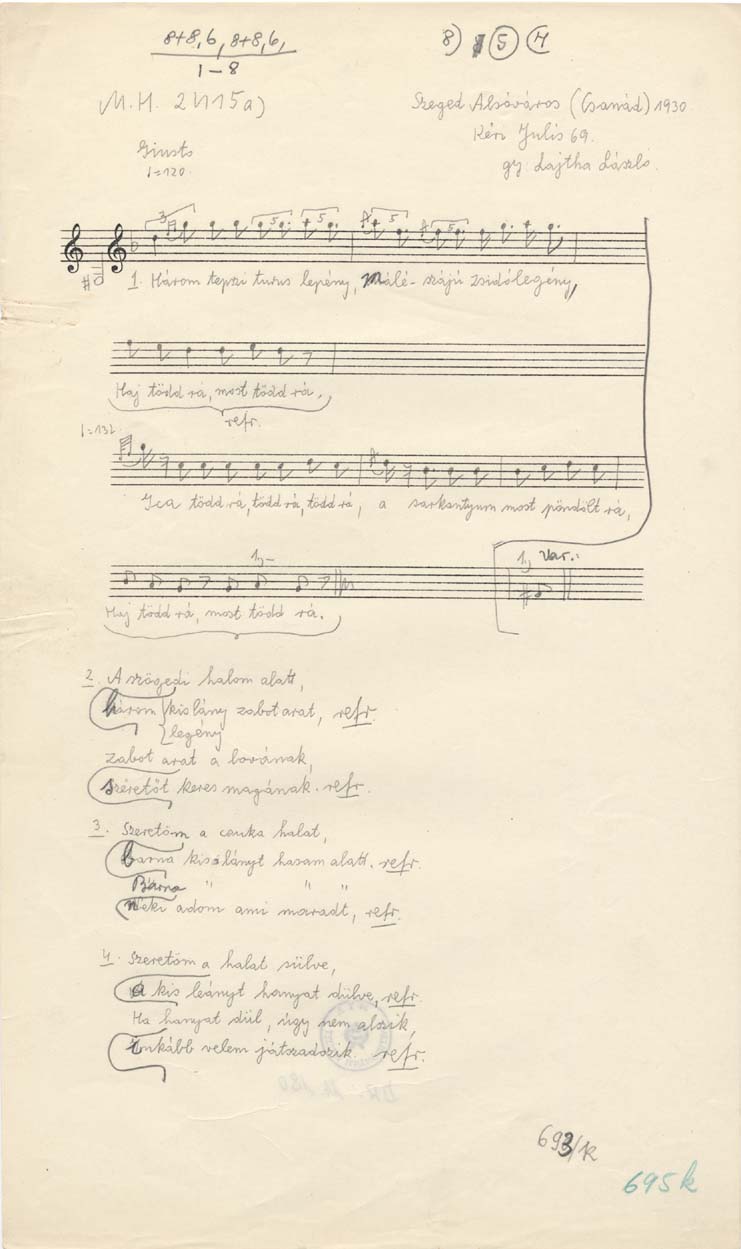 8+8, 6, 8+8, 6,
1-8
8) 5 4
M.H. 2415a)
Szeged Alsóváros (Csanád) 1930.
Kéri Julis 69.
gy. Lajtha László.
Giusto
♩=120.
1. Három tepszi turus lepény, málé-szájú zsidólegény,
Haj tödd rá, most tödd rá.
refr.
♩=132
Ica tödd rá, tödd rá, tödd rá, a sarkantyum most pöndölt rá,
1, Var.:
Haj tödd rá, most tödd rá.
2. A szögedi halom alatt,
három kislány zabot arat, refr.
legény
zabot arat a lovának,
szeretőt keres magának. refr.
3. Szeretöm a csuka halat,
barna kis lányt hasam alatt. refr.
Barna " " "
neki adom ami maradt, refr.
4. Szeretöm a halat sülve,
a kis leányt hanyat dülve, refr.
Ha hanyat dül, úgy nem alszik,
inkább velem játszadszik. refr.
693/k
695k